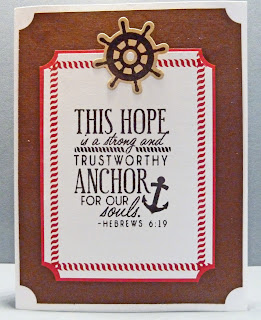 THIS HOPE
is a strong and
TRUSTWORTHY
ANCHOR
FOR OUR
souls.
-HEBREWS 6:19